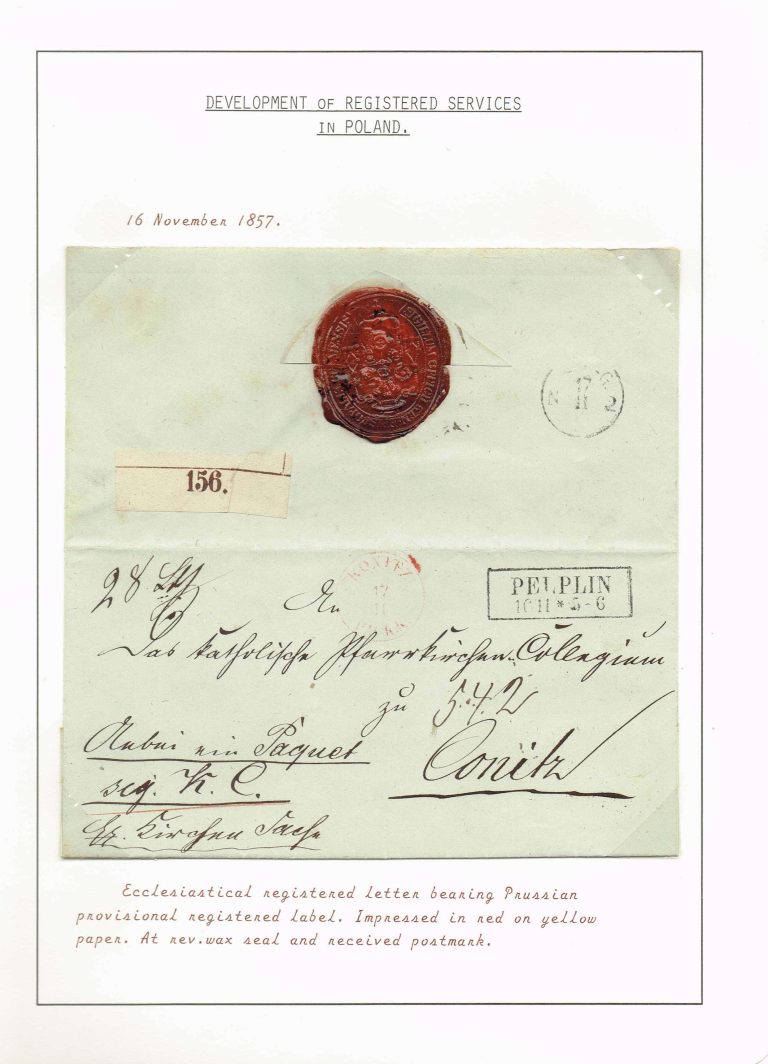 DEVELOPMENT OF REGISTERED SERVICES
IN POLAND.
16 November 1857.
SIGILLUM
17
N 11 2
156.
28 Lth
KONITZ
17
11
PELPLIN
16 11 * 5-6
An
Das katholische Pfarrkirchen-Collegium
zu 542
Conitz
Nebei ein Paquet
sig. K. C.
Kirchen Sache
Ecclesiastical registered letter bearing Prussian
provisional registered label. Impressed in red on yellow
paper. At rev.wax seal and received postmark.